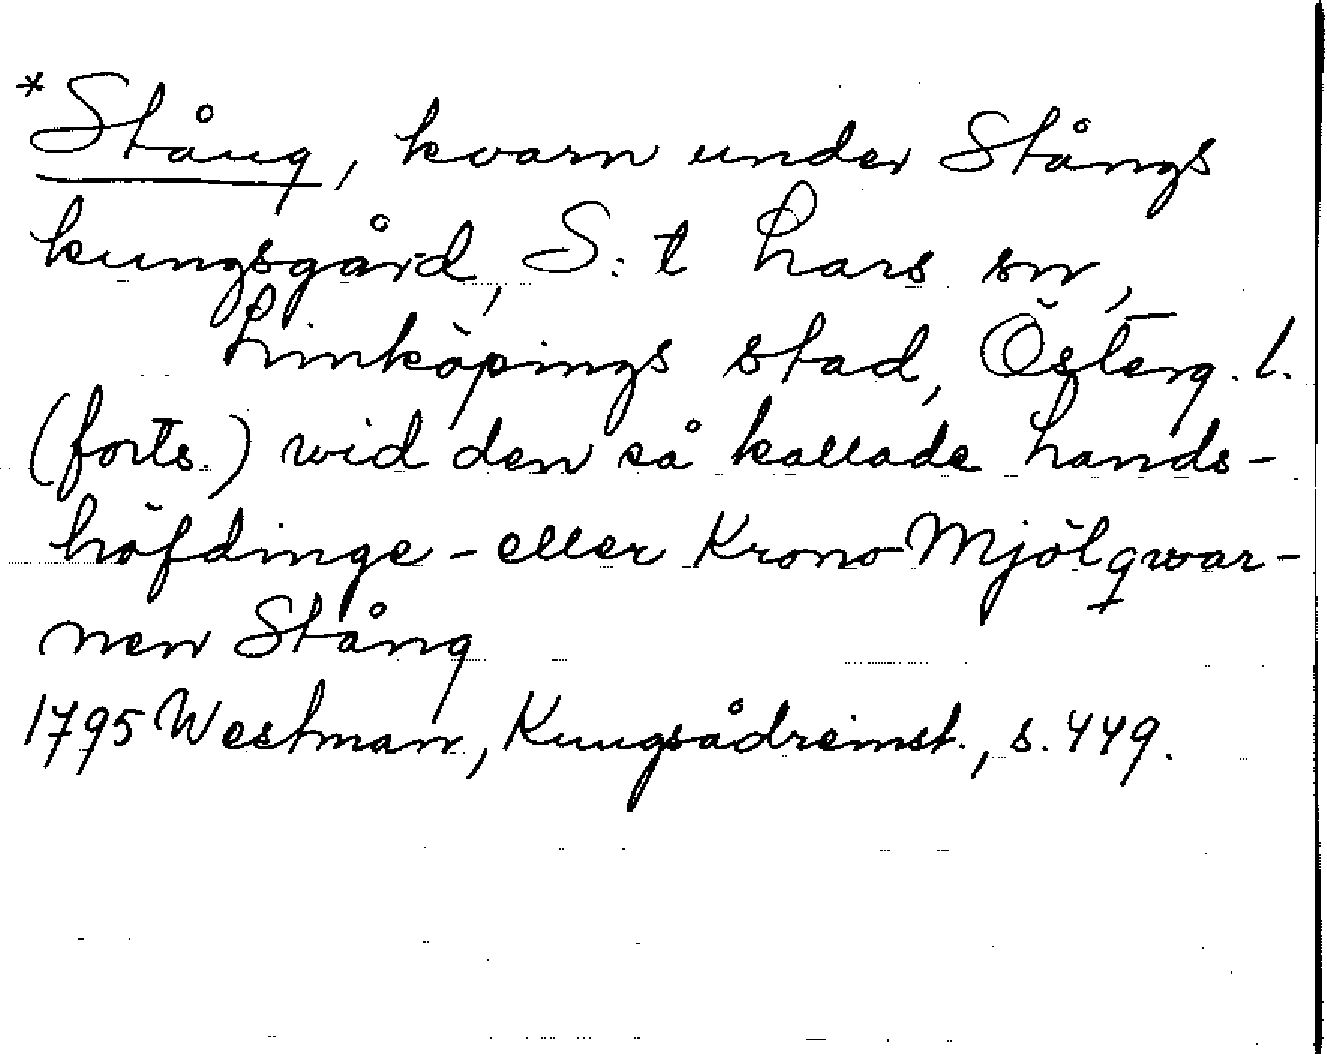 *Stång, kvarn under Stångs
kungsgård, S:t Lars sn,
Linköpings stad, Österg. l.
(forts.) wid den så kallade Lands-
höfdinge- eller Krono Mjölqwar-
nen Stång
1795 Westman, Kungsådreinst., s. 449.